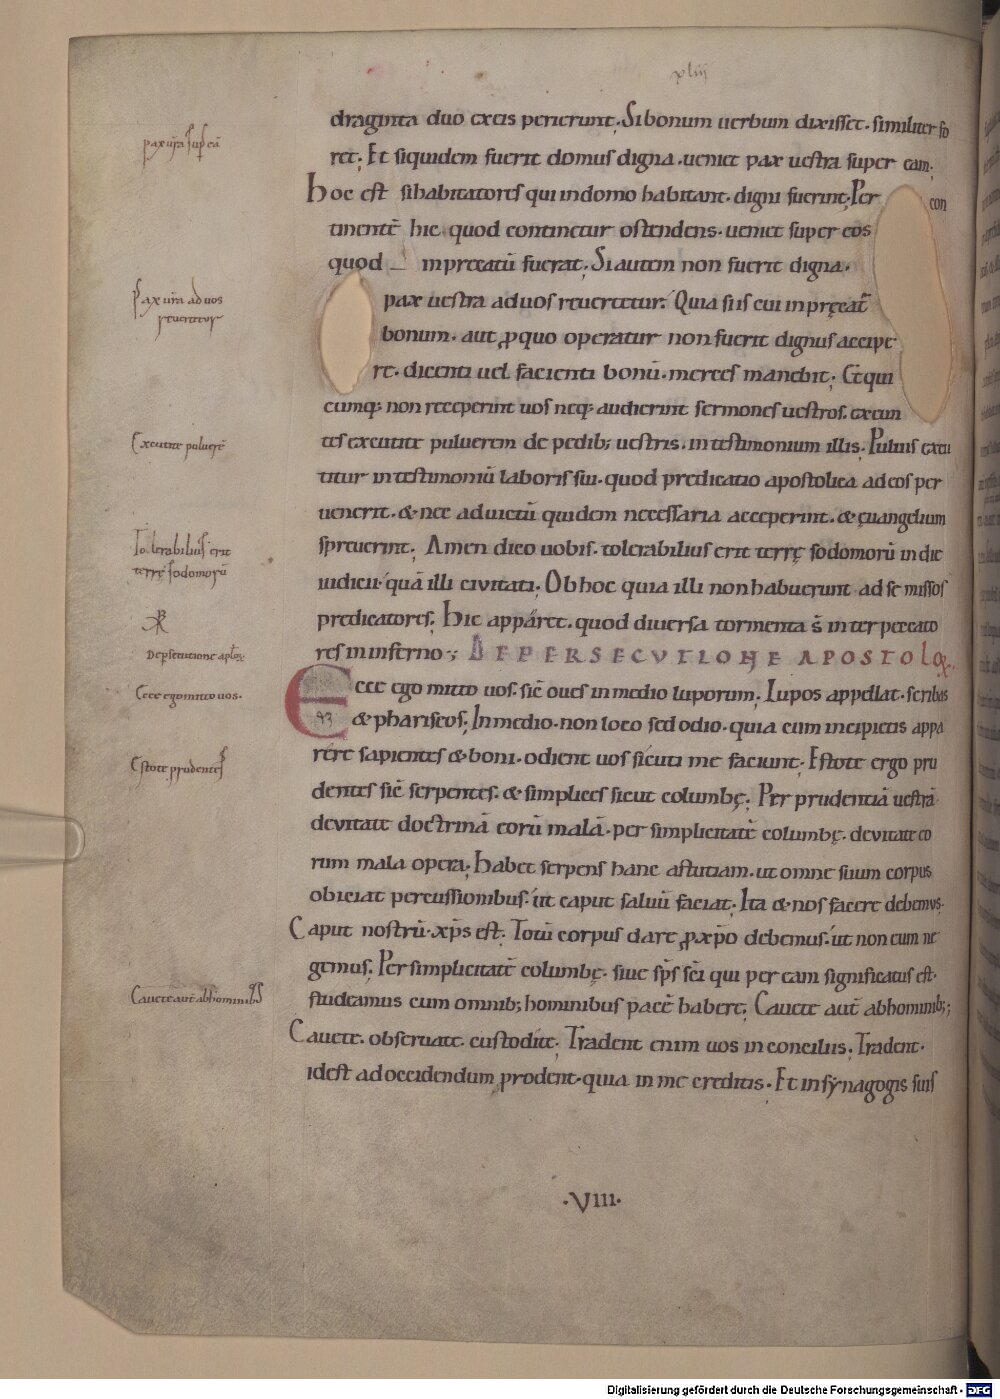 xliij
draginta duo ex eis perierunt. Si bonum uerbum dixisset. similiter fo
ret; Et siquidem fuerit domus digna. ueniet pax uestra super eam;
pax ur̄a sup eā
Hoc est si habitatores qui in domo habitant. digni fuerint; Per con
tinentē hic quod continetur ostendens. ueniet super eos
quod inprecatū fuerat; Si autem non fuerit digna.
pax uestra ad uos reuertetur; Quia si is cui inpręcat̄
Pax ur̄a ad uos
reuertetur
bonum. aut ꝓ quo operatur non fuerit dignus accipe
re. dicenti uel facienti bonū. merces manebit; Et qui
cumq; non receperint uos neq; audierint sermones uestros. exeun
tes excutite puluerem de pedib; uestris. in testimonium illis; Puluis excu
Excutite pulucrē
titur in testimoniū laboris sui. quod predicatio apostolica ad eos per
uenerit. & nec ad uictū quidem necessaria acceperint. & euangelium
spreuerint; Amen dico uobis. tolerabilius erit terrę sodomorū in die
Tolerabilius erit
terrę sodomorū
iudicii. quā illi ciuitati; Ob hoc quia illi non habuerunt ad se missos
predicatores; Hic apparet. quod diuersa tormenta s̄ inter peccato
res in inferno; DE PERSECVTIONE APOSTOLOꝜ.
De psecutione aplōꝜ
Ecce ego mitto uos. sic̄ oues in medio luporum; Lupos appellat. scribas
Ecce ego mitto uos.
93
& phariseos; In medio. non loco sed odio. quia cum incipietis appa
rere sapientes & boni. odient uos sicuti me faciunt; Estote ergo pru
Estote prudentes
dentes sic̄ serpentes. & simplices sicut columbę; Per prudentiā uestrā
deuitate doctrinā eorū malā. per simplicitatē columbę. deuitate eo
rum mala opera; Habet serpens hanc astutiam. ut omne suum corpus
obiciat percussionibus. ut caput saluū faciat; Ita & nos facere debemus.
Caput nostrū. xp̄s est; Totū corpus dare ꝓ xp̄o debemus. ut non eum ne
gemus; Per simplicitatē columbę. siue sp̄s sc̄i qui per eam significatus est.
studeamus cum omnib; hominibus pacē habere; Cauete aut̄ ab hominib;;
Cauete aut̄ ab hominib;
Cauete. obseruate. custodite; Tradent enim uos in conciliis; Tradent.
idest ad occidendum prodent. quia in me creditis. Et in synagogis suis
.VIII.
Digitalisierung gefördert durch die Deutsche Forschungsgemeinschaft - DFG